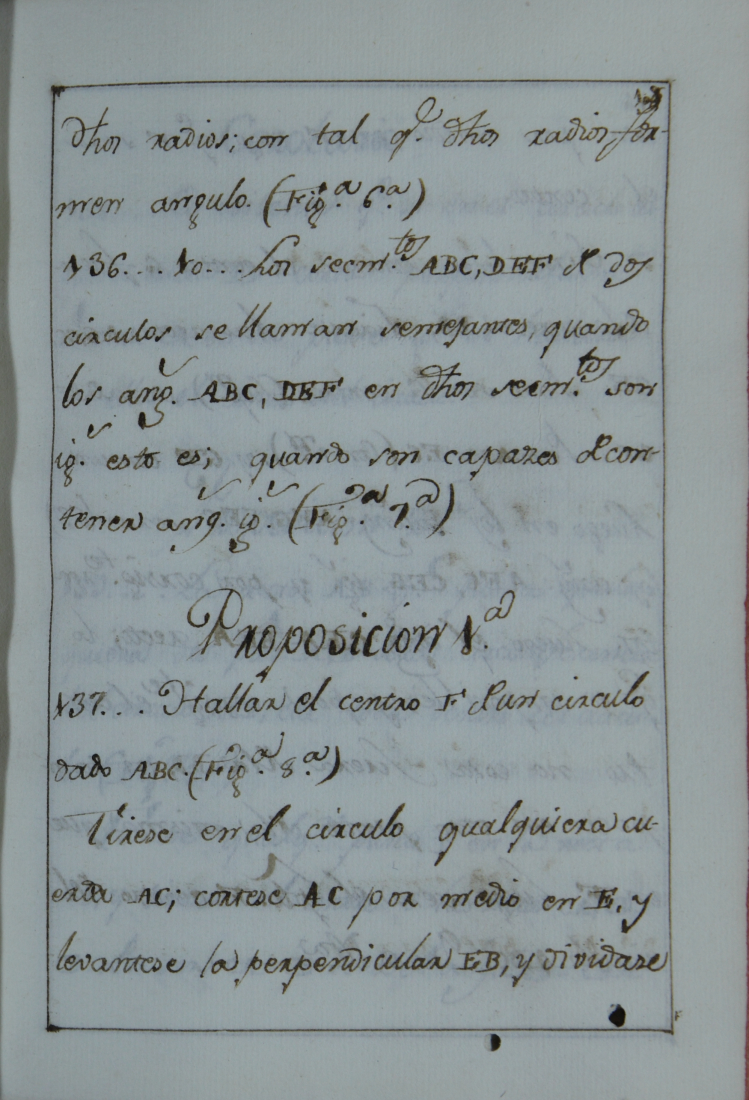 dhos radios; con tal q.e dhos radios for-
men angulo. (Fig.a 6.a)
136... 10... Los secm.tos ABC, DEF de dos
circulos se llaman semejantes, quando
los ang.s ABC, DEF en dhos secm.tos son
ig.s esto es; quando son capazes de con-
tener ang.s ig.s (Fig.a 7.a)
Proposición 1.a
137... Hallar el centro F de un circulo
dado ABC. (Fig.a 8.a)
Tirese en el circulo qualquiera cu-
erda AC; cortese AC por medio en E, y
levantese la perpendicular EB, y dividase